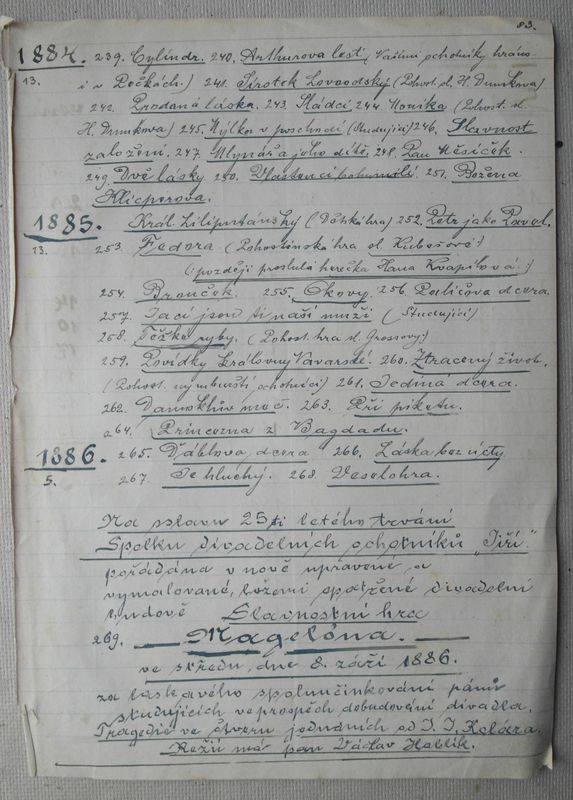 83.
1884. 239. Cylindr. 240. Arthurova lest (Našimi ochotníky hráno
13. i v Pečkách.) 241. Sirotek Lowoodský (Pohost. sl. H. Dumkova)
242. Prodaná láska. 243. Sládci 244. Monika (Pohost. sl.
H. Dumkova) 245. Výlkov v poschodí (Studující) 246. Slavnost
založení. 247. Mlynář a jeho dítě. 248. Pan Měsíček.
249. Dvě lásky. 250. Vlastenci bohumilí. 251. Božena
Klicperova.
1885. Král. Liliputánský (Dětská hra) 252. Petr jako Pavel.
13. 253. Fedora. (Pohostinská hra sl. Kubešové:)
(: později proslulá herečka Hana Kvapilová:)
254. Brouček. 255. Okovy. 256. Paličova dcera.
257. Jací jsou ti naši muži (Studující)
258. Těžké ryby. (Pohost. hra sl. Grossovy:)
259. Povídky královny Navarské. 260. Ztracený život.
(Pohost. nymburští ochotníci) 261. Jediná dcera.
262. Damoklův meč. 263. Při piketu.
264. Princezna z Bagdadu.
1886. 265. Ďáblova dcera 266. Láska bez úcty
5. 267. Je hluchý. 268. Veselohra.
Na slavu 25ti letého trvání
Spolku divadelních ochotníků "Jiří."
pořádána v nově upravené, a
vymalované, ložemi opatřené divadelní
budově Slavnostní hra
269. Magelóna.
ve středu, dne 8. září 1886.
za laskavého spoluúčinkování pánů
studujících ve prospěch dobudování divadla.
Tragedie ve čtveru jednáních od J. J. Kolára.
Režii má pan Václav Havlík.